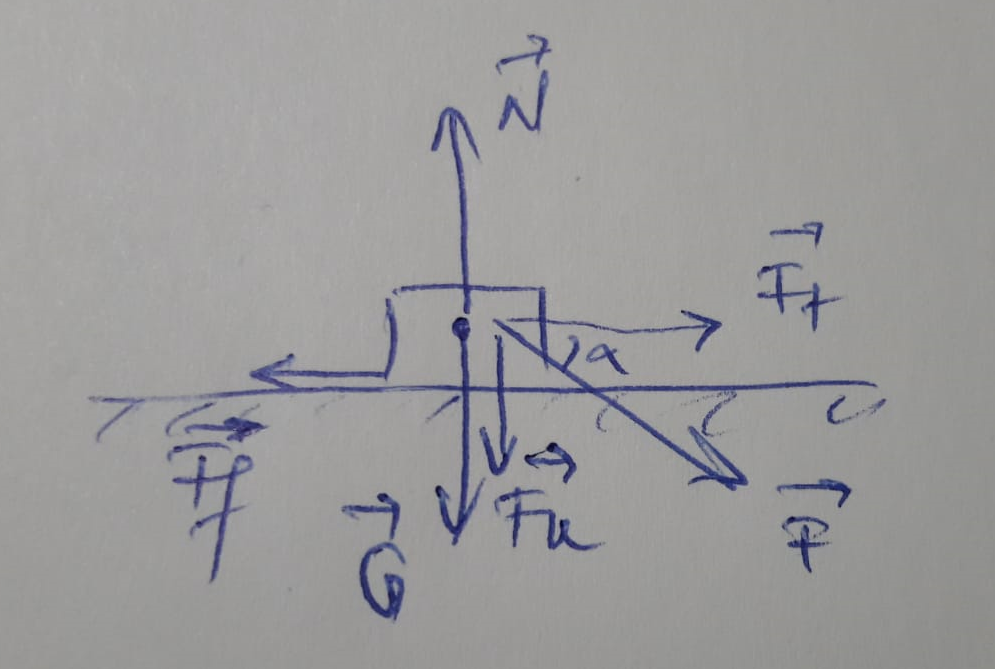 N⃗
F⃗t
α
F⃗f
G⃗
F⃗n
F⃗